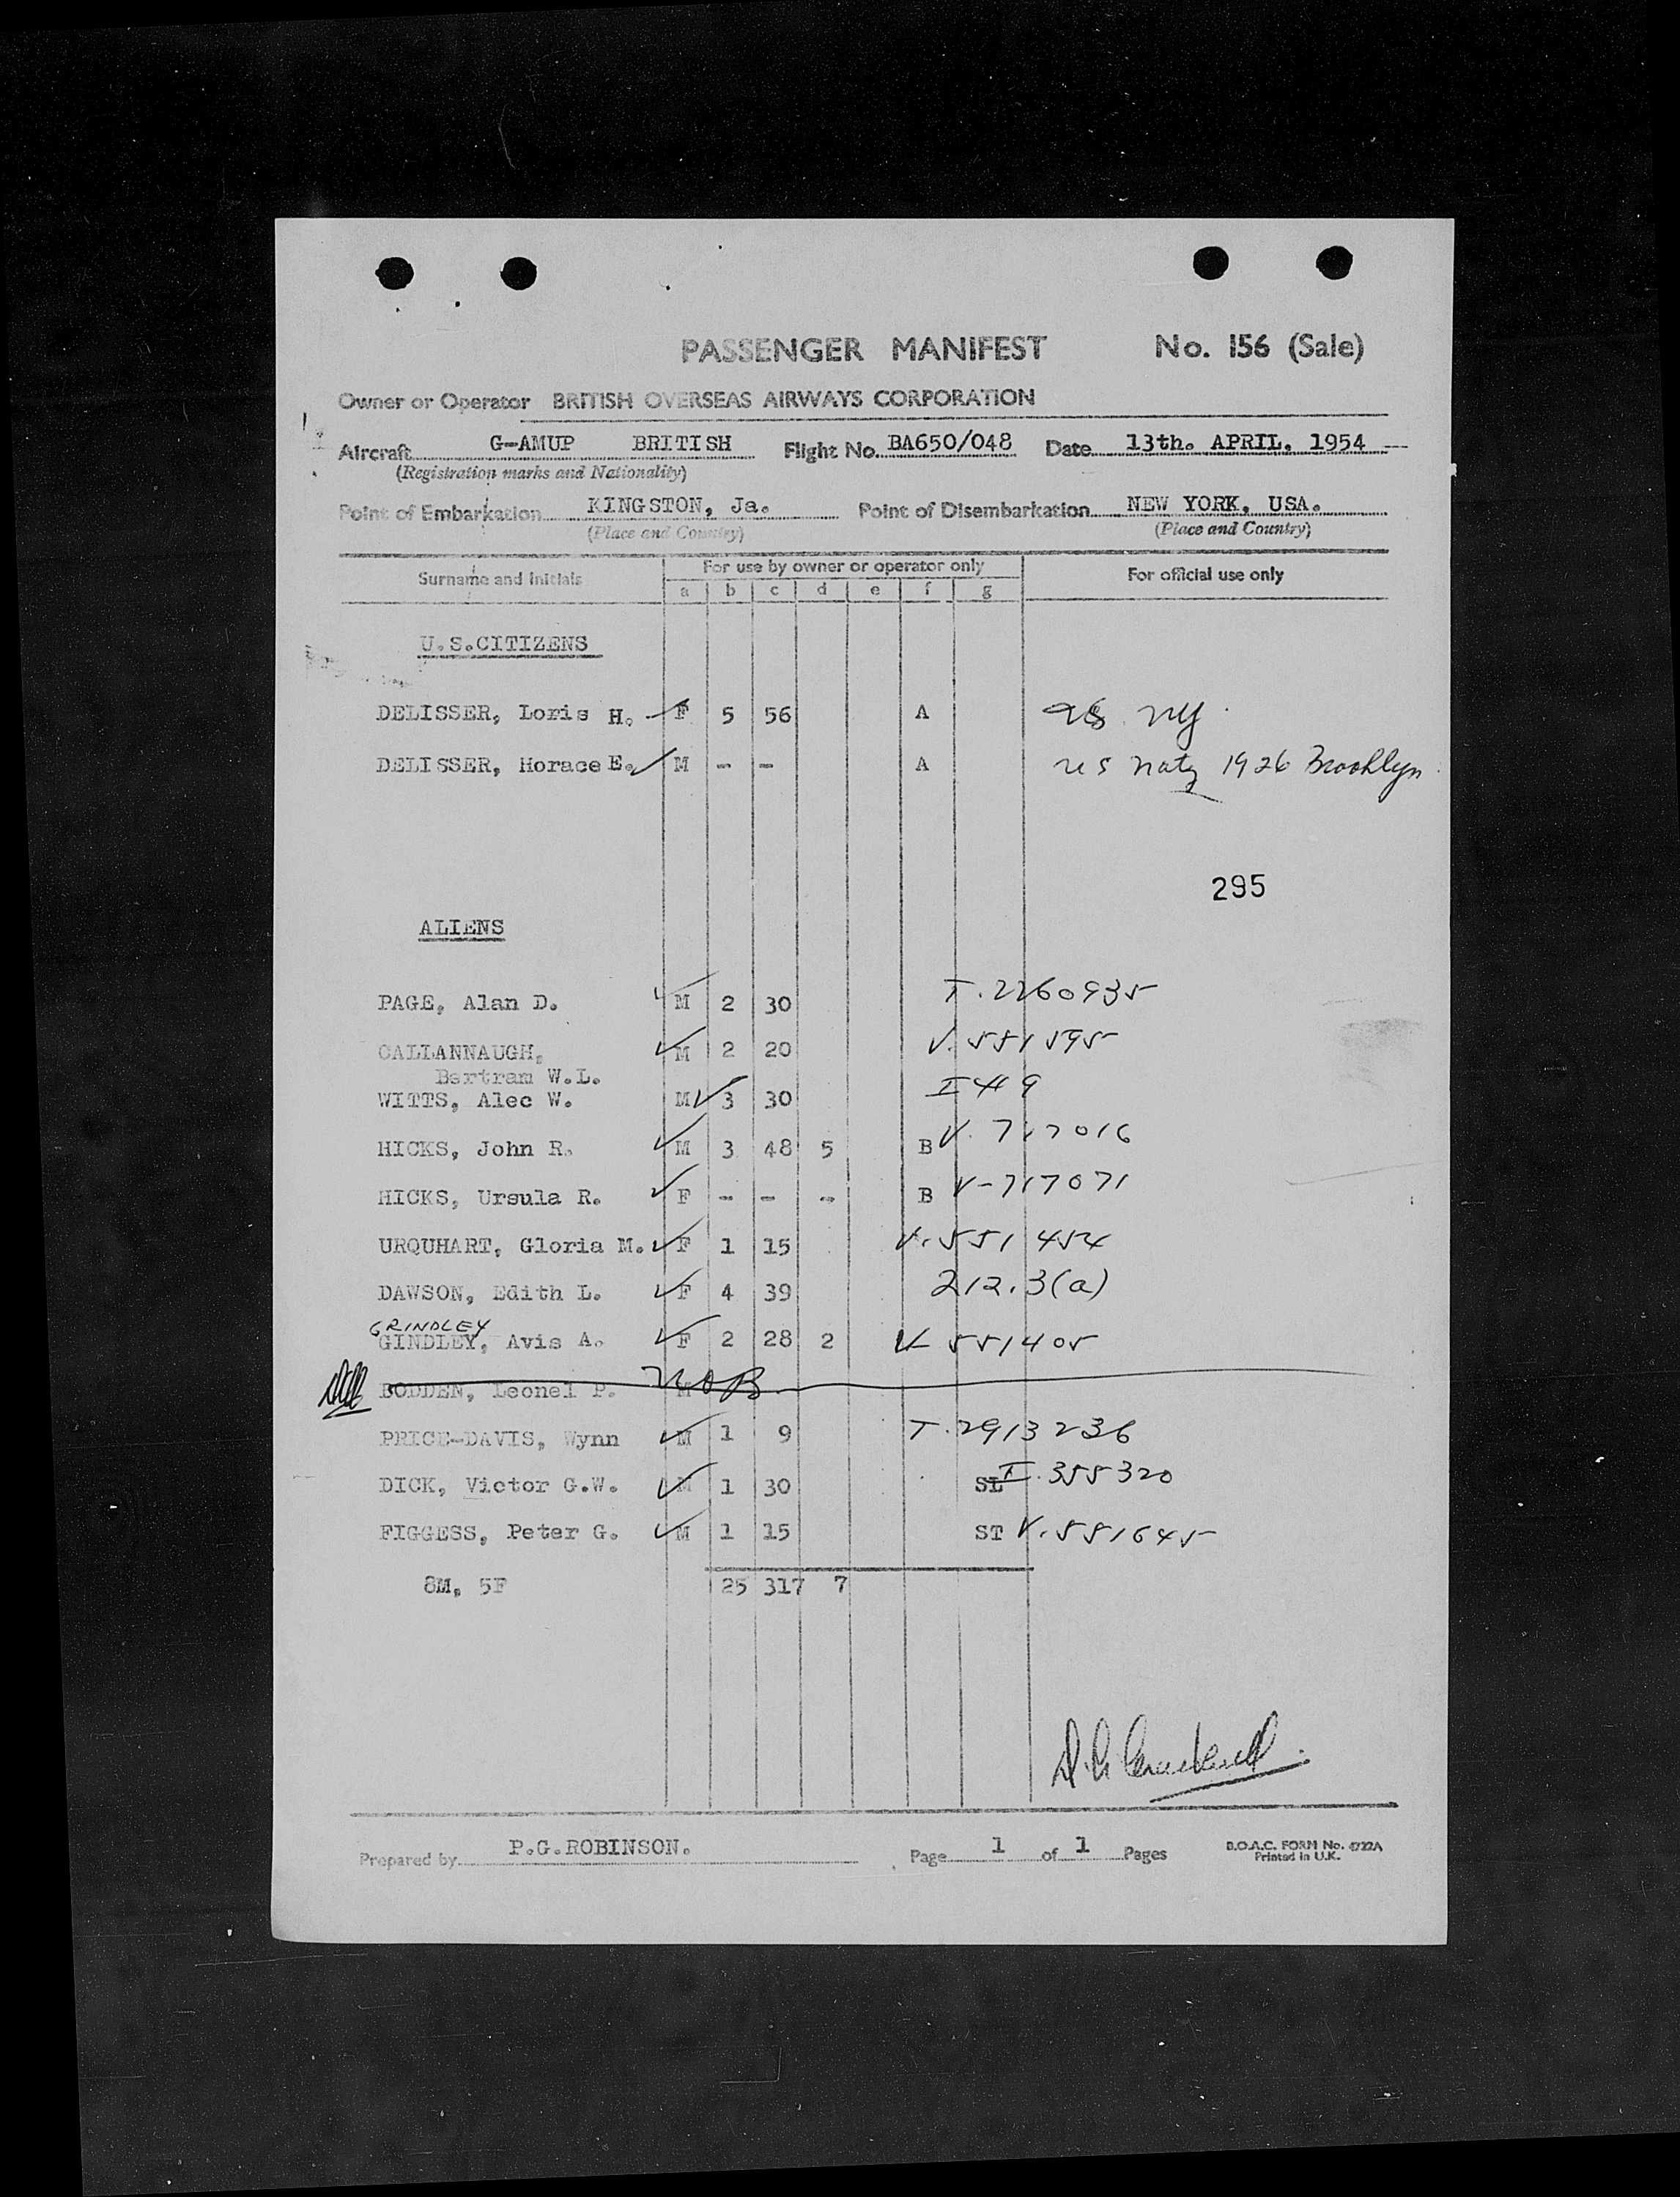 PASSENGER MANIFEST No. 156 (Sale)
Owner or Operator BRITISH OVERSEAS AIRWAYS CORPORATION
Aircraft G-AMUP BRITISH Flight No. BA650/048 Date 13th. APRIL, 1954
(Registration marks and Nationality)
Point of Embarkation KINGSTON, Ja. Point of Disembarkation NEW YORK, USA.
(Place and Country) (Place and Country)
Surname and Initials For use by owner or operator only For official use only
a b c d e f g
U.S.CITIZENS
DELISSER, Loris H. F 5 56 A US. NY.
DELISSER, Horace E. M - - A US Natz 1926 Brooklyn
295
ALIENS
PAGE, Alan D. M 2 30 T.2260935
CALLANNAUGH, M 2 20 V.551595
Bertram W.L.
WITTS, Alec W. M 3 30 I 9
HICKS, John R. M 3 48 5 B V. 717016
HICKS, Ursula R. F - - - B V-717071
URQUHART, Gloria M. F 1 15 V.551454
DAWSON, Edith L. F 4 39 212.3(a)
GRINDLEY
GINDLEY, Avis A. F 2 28 2 V 551405
BODDEN, Leonel P. M NOB
PRICE-DAVIS, Wynn M 1 9 T.2913236
DICK, Victor G.W. M 1 30 SL I.355320
FIGGESS, Peter G. M 1 15 ST V.551645
8M, 5F 25 317 7
Prepared by P.G.ROBINSON. Page 1 of 1 Pages
B.O.A.C. FORM No. 4722A
Printed in U.K.